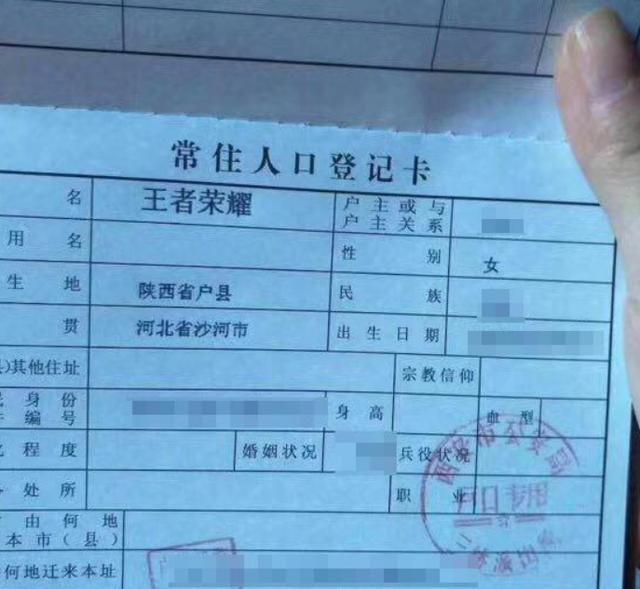 常住人口登记卡
名 王者荣耀 户主或与户主关系
用名 性别 女
生地 陕西省户县 民族
贯 河北省沙河市 出生日期
)其他住址 宗教信仰
身份 编号 身高 血型
程度 婚姻状况 兵役状况
处所 职业
由何地 本市(县)
何地迁来本址
西安市公安局
户口专用